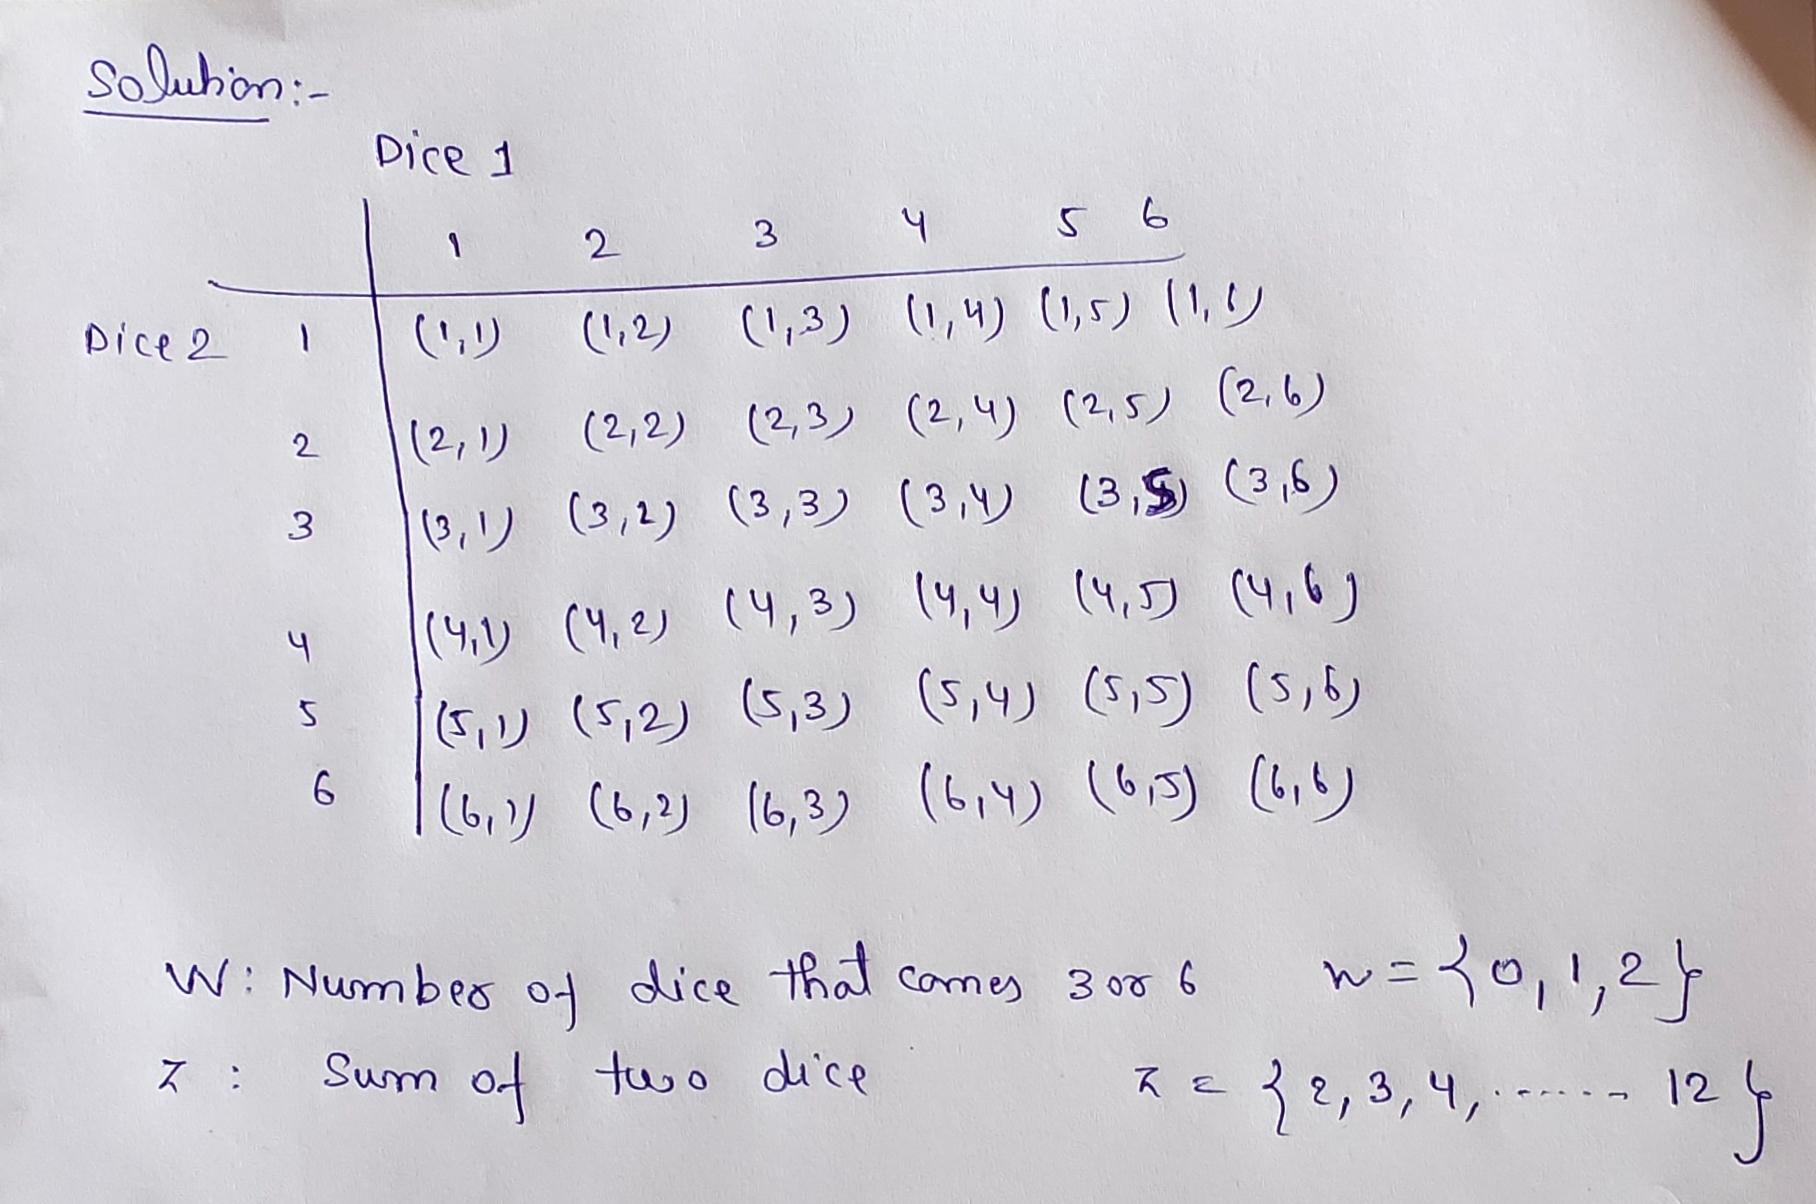 Solution:-
Dice 1
1 2 3 4 5 6
Dice 2 1 (1,1) (1,2) (1,3) (1,4) (1,5) (1,6)
2 (2,1) (2,2) (2,3) (2,4) (2,5) (2,6)
3 (3,1) (3,2) (3,3) (3,4) (3,5) (3,6)
4 (4,1) (4,2) (4,3) (4,4) (4,5) (4,6)
5 (5,1) (5,2) (5,3) (5,4) (5,5) (5,6)
6 (6,1) (6,2) (6,3) (6,4) (6,5) (6,6)
W: Number of dice that comes 3 or 6 w = {0,1,2}
Z : Sum of two dice z = {2,3,4,...... 12}